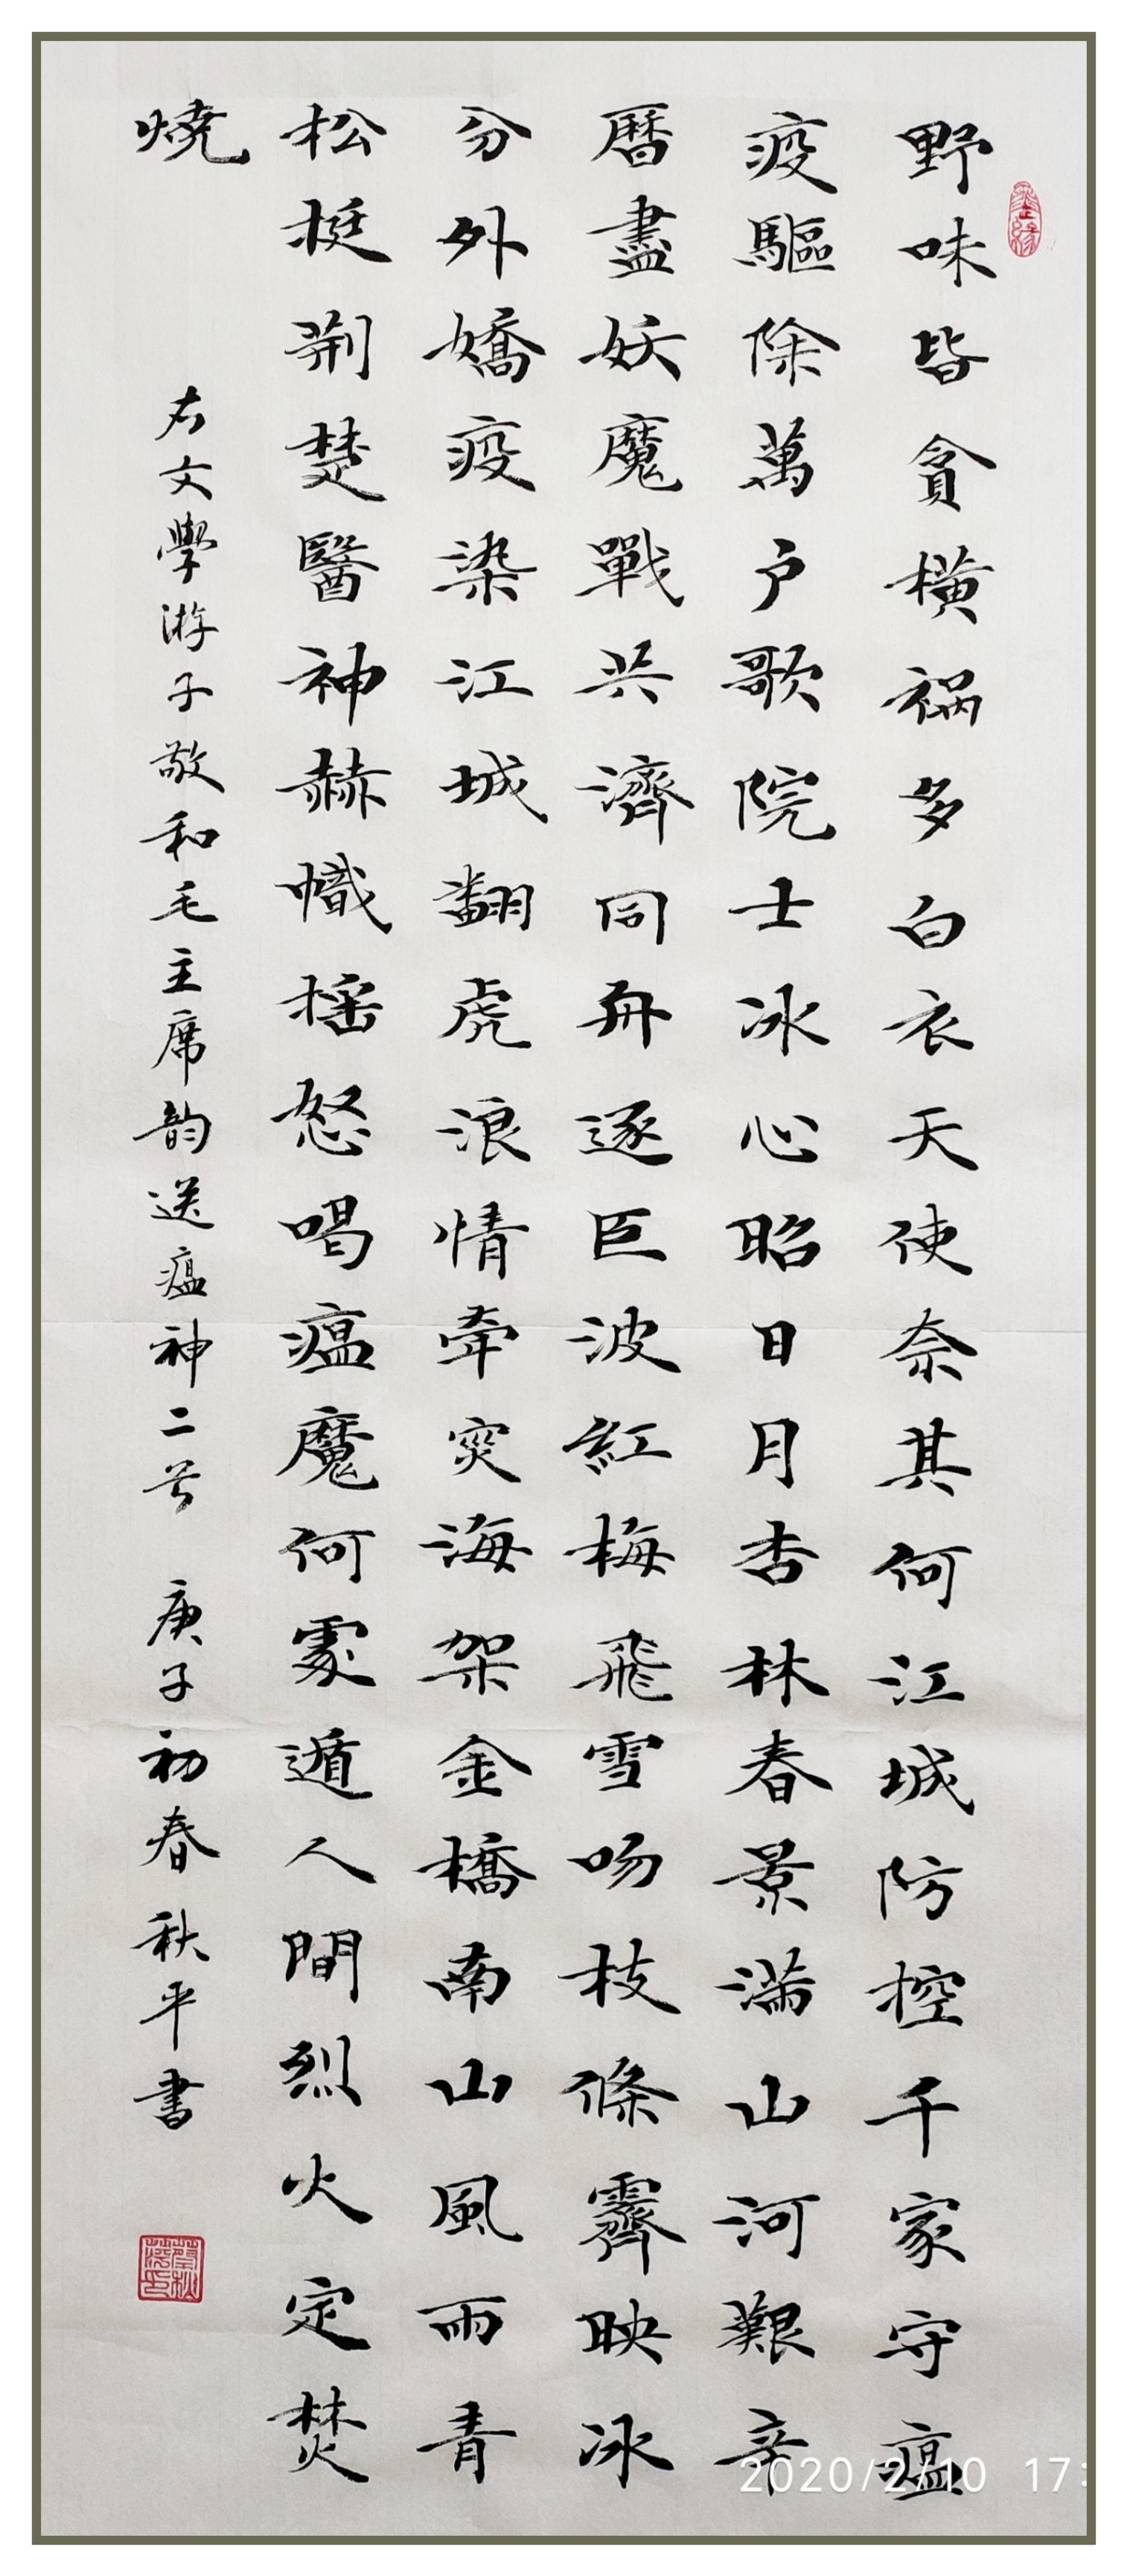 野味皆貪橫祸多白衣天使奈其何江城防控千家守瘟
疫驅除萬户歌院士冰心昭日月杏林春景滿山河艱辛
曆盡妖魔戰共濟同舟逐巨波紅梅飛雪吻枝條霽映冰
分外嬌疫染江城翻虎浪情牽突海架金橋南山風雨青
松挺荆楚醫神赫幟摇怒喝瘟魔何處遁人間烈火定焚
燒
右文學游子敬和毛主席韵送瘟神二首 庚子初春秋平書
2020/2/10 17: